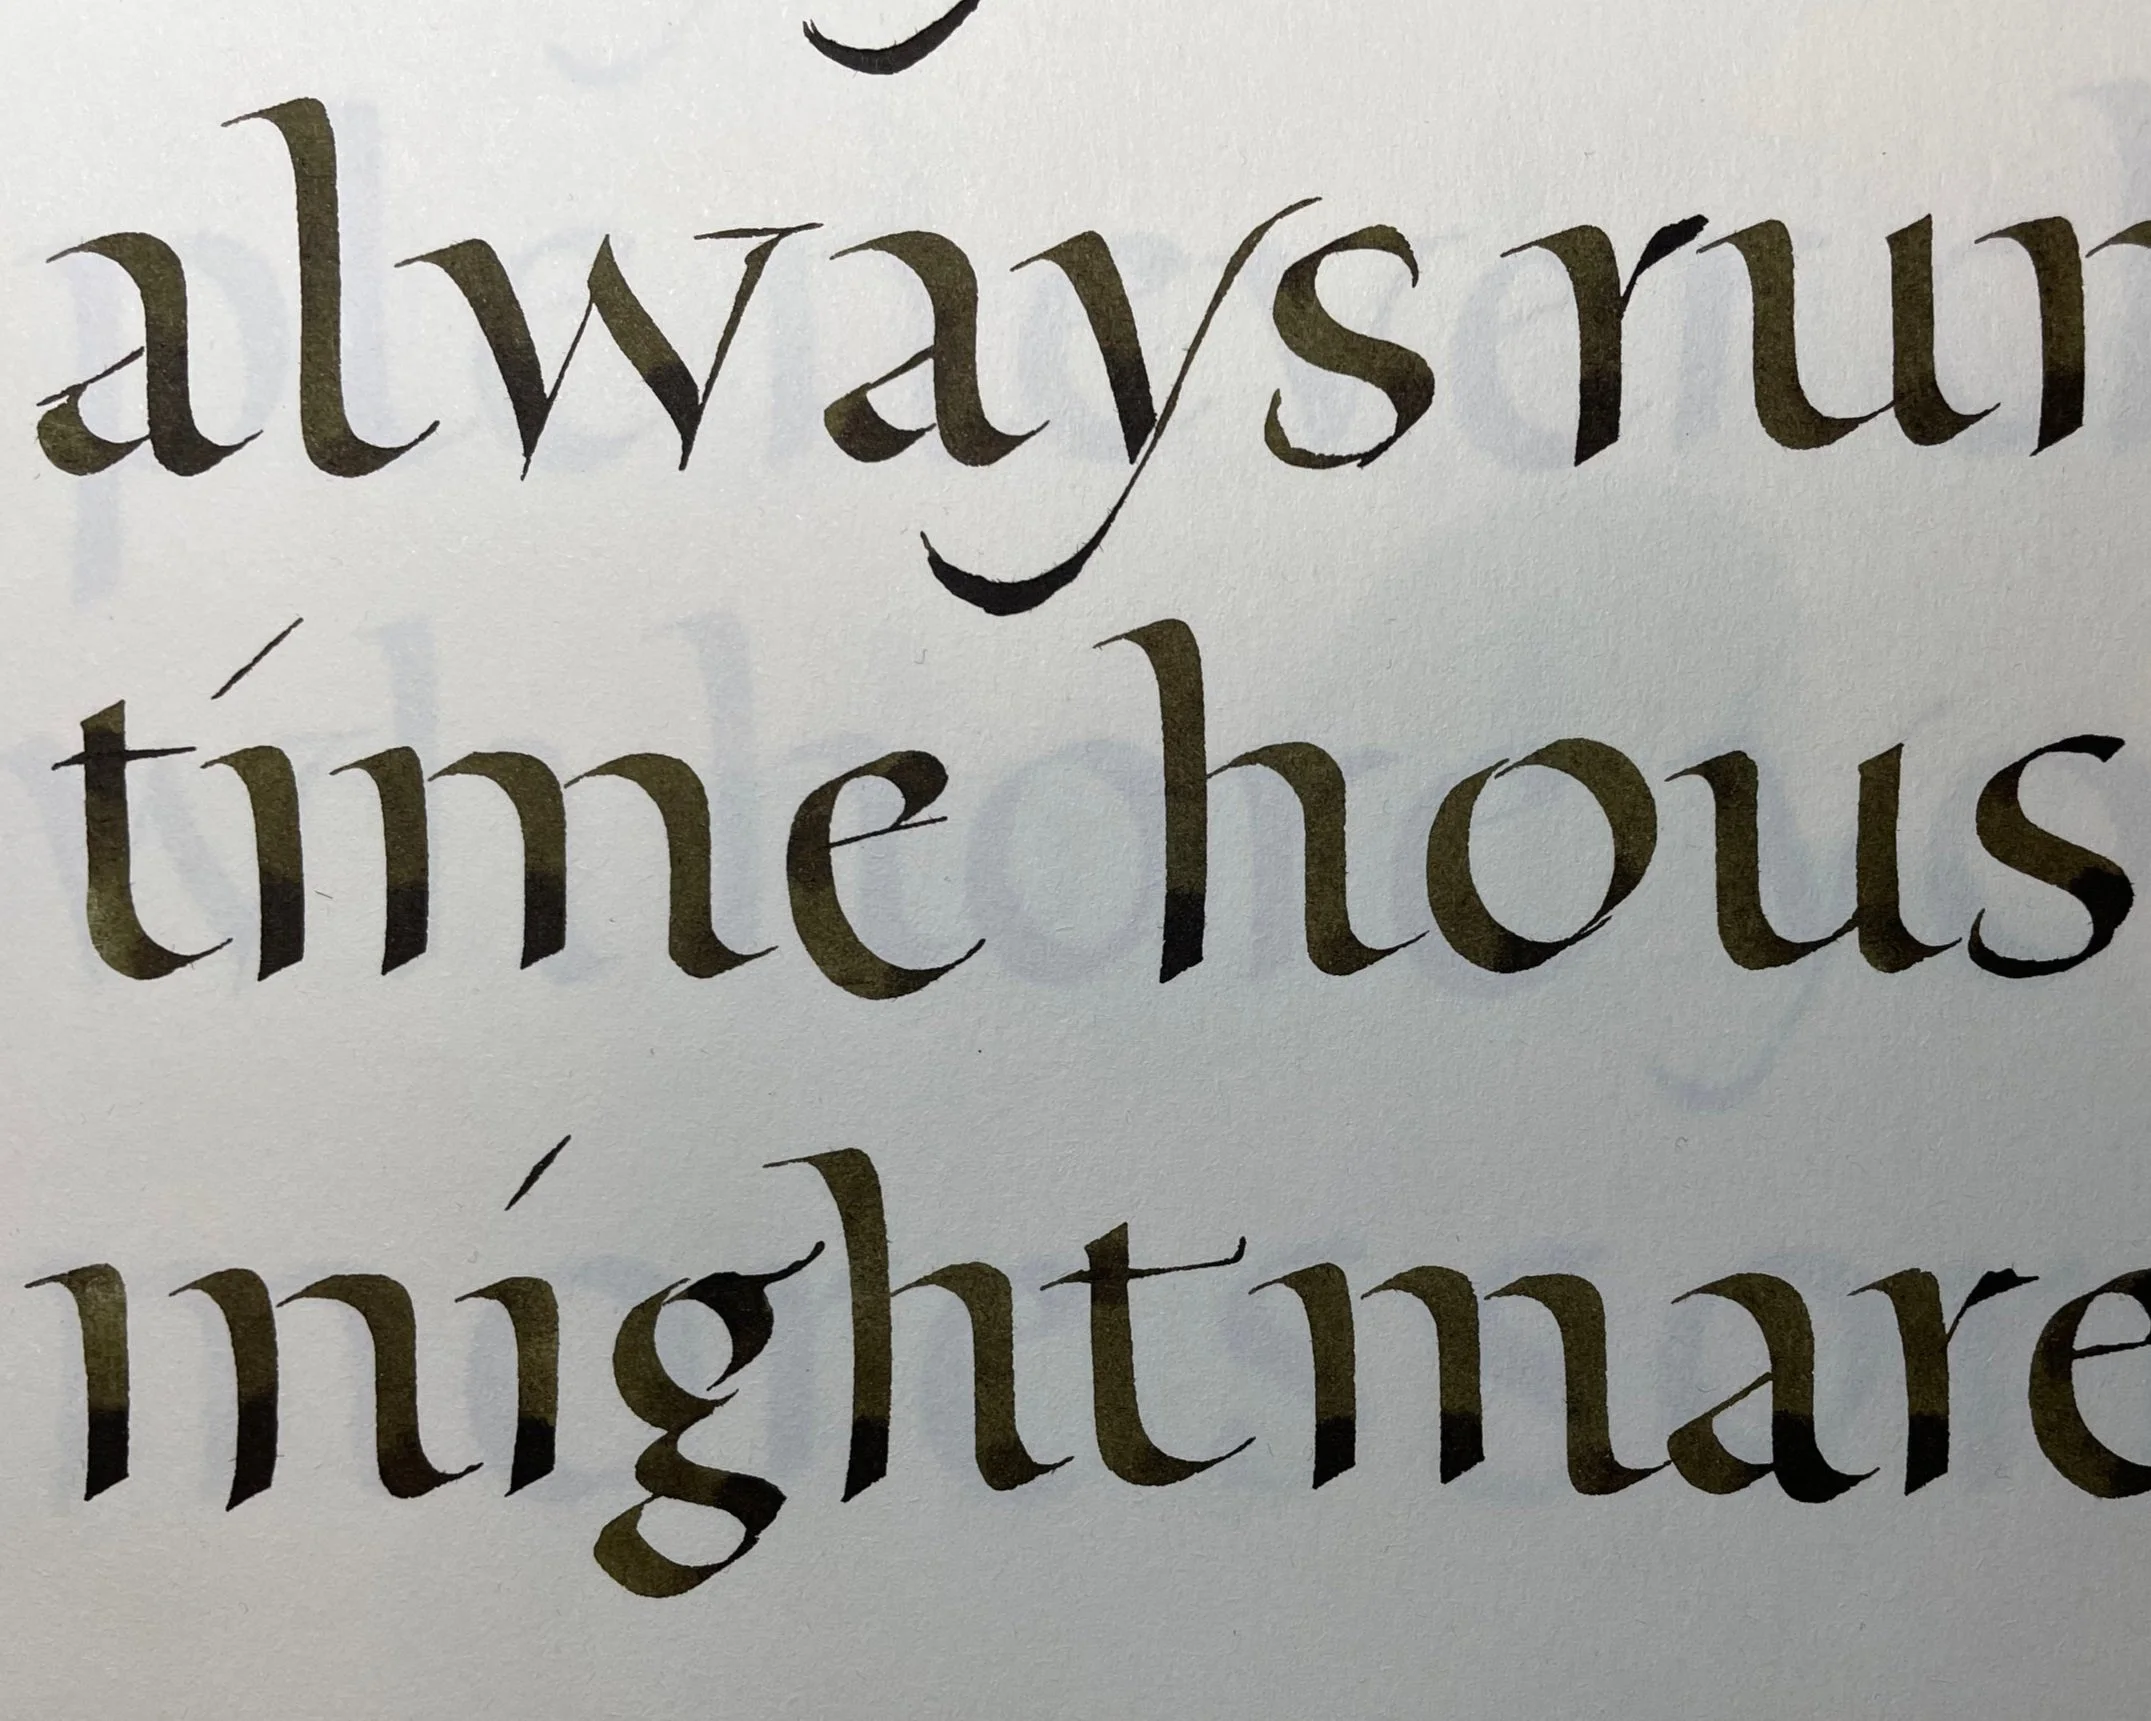 always run
time hous
nightmare